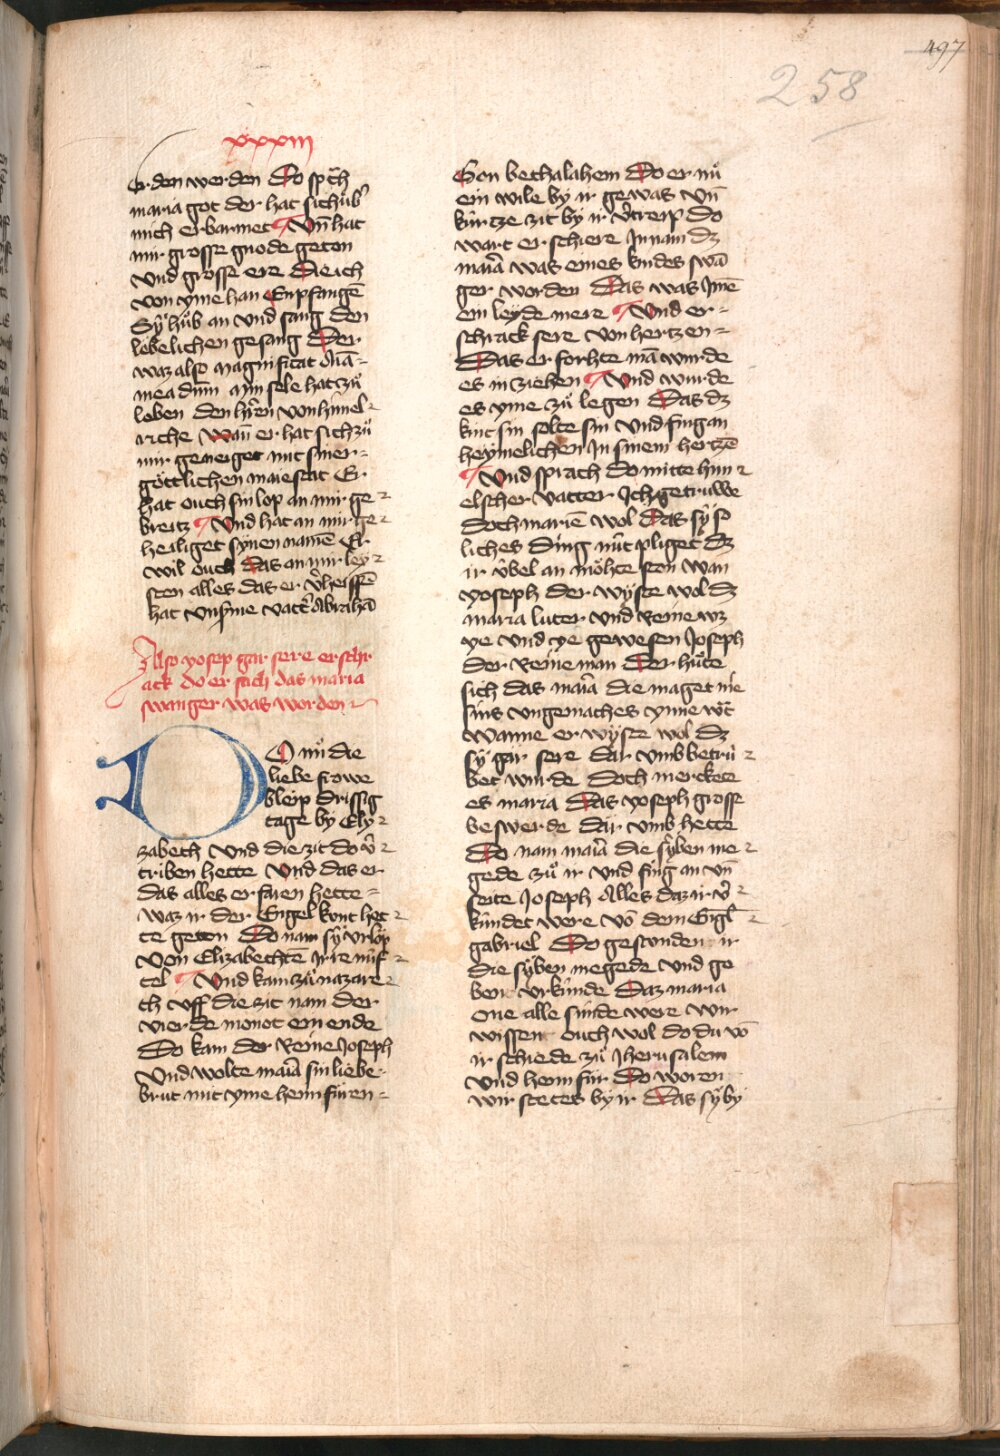 497
258
xxxiii
erden werden Do sp͠ch
maria got der hat sich úb͛
mich erbarmet Vn̄ hat
mir grosse gnode geton
Vnd grosse ere Die ich
von yme han Enpfangē
Sy hůb an vnd sang den
lobelichen gesang Der
waz also magnificat aīa=
mea dn̄m Myn sele hat zů
loben den h͛ren von himel
riche Wan̄ er hat sich zů
mir geneiget mit siner=
göttlichen maiestat Er
hat ouch sin lop an mir ge
breitz Vnd hat an mir ge
heiliget synen namē Er
wil ouch das an mir ley
sten alles das er v͛heissē
hat vnsyme vatt͛ Abrahā
Also yosep gar sere erschr
ack do er sach das maria
swanger was worden
DO nů die
liebe frowe
bleip drissig
tage by Ely
zabeth Vnd die zit do v͛
triben hette Vnd das er
das alles erfaren hette=
Waz ir der Engel kunt het
te geton Do nam sy vrlop
Von Elizabechtē Irre nůf
tel Vnd kam zů nazare
th vff die zit nam der
vierde monot ein ende
Do kam der Reine Joseph
Vnd wolte maīa sin liebe
brut mit yme heim fůren=
Gon bethalahem Do er nů
ein wile by ir gewas Vn̄
kúrtze zit by ir v͛treip Do
wart er schiere Innan dz
maīa was eines kindes swā
ger worden Das was Imē
ein leyde mere Vnd er=
schrack sere von hertzen=
Das er forhte mā wurde
es in ziehen Vnd wurde
es yme zů legen Das dz
kint sin solte sin Vnd fing an
heymelichen In sinem hertzē
Vnd sprach Do mitte him
elscher vatter Ich getruwe
doch mariē wol Das sy so
liches ding nút pfliget dz
ir úbel an möhte ston Wan
yoseph der wyste wol dz
maria luter vnd Reine wz
ye vnd ye gewesen Joseph
der Reine man Der hůte
sich das maīa die maget nie
sins vngemaches ynne w͛t
Wanne er wyste wol dz
sy gar sere dar vmb betrů
bet wurde Doch merckete
es maria Das yoseph grosse
beswerde dar vmb hette
Do nam maīa die syben me
gede zů ir vnd fing an vn̄
seite Joseph Alles daz ir v͛
kúndet were vō dem Engl̄
gabriel Do gestunden ir
die syben megede vnd ge
ben vrkúnde Daz maria
one alle súnde were Wir
wissen ouch wol do du vō
ir schiede zů Jherusalem
Vnd heim fůr Do woren
wir stetes by ir Das sy by